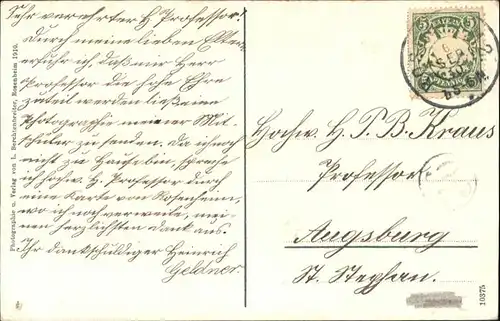 Sehr verehrter H. Professor!
Durch meine lieben Eltern
erfuhr ich, daß mir Herr
Professor die hohe Ehre
zuteil werden ließen eine
Photographie meiner Mit-
schüler zu senden. Da ich noch
nicht zu Hause bin, spreche
ich hochw. H. Professor durch
eine Karte von Rosenheim,
wo ich noch verweile, mei-
nen herzlichsten Dank aus.
Ihr dankschuldiger Heinrich
Geldner.
Hochw. H. P. B. Kraus
Professor
Augsburg
St. Stephan.
BAYERN
5
5
PFENNIG
6
SEP
Photographie u. Verlag von L. Rosenheim 1910.
10375